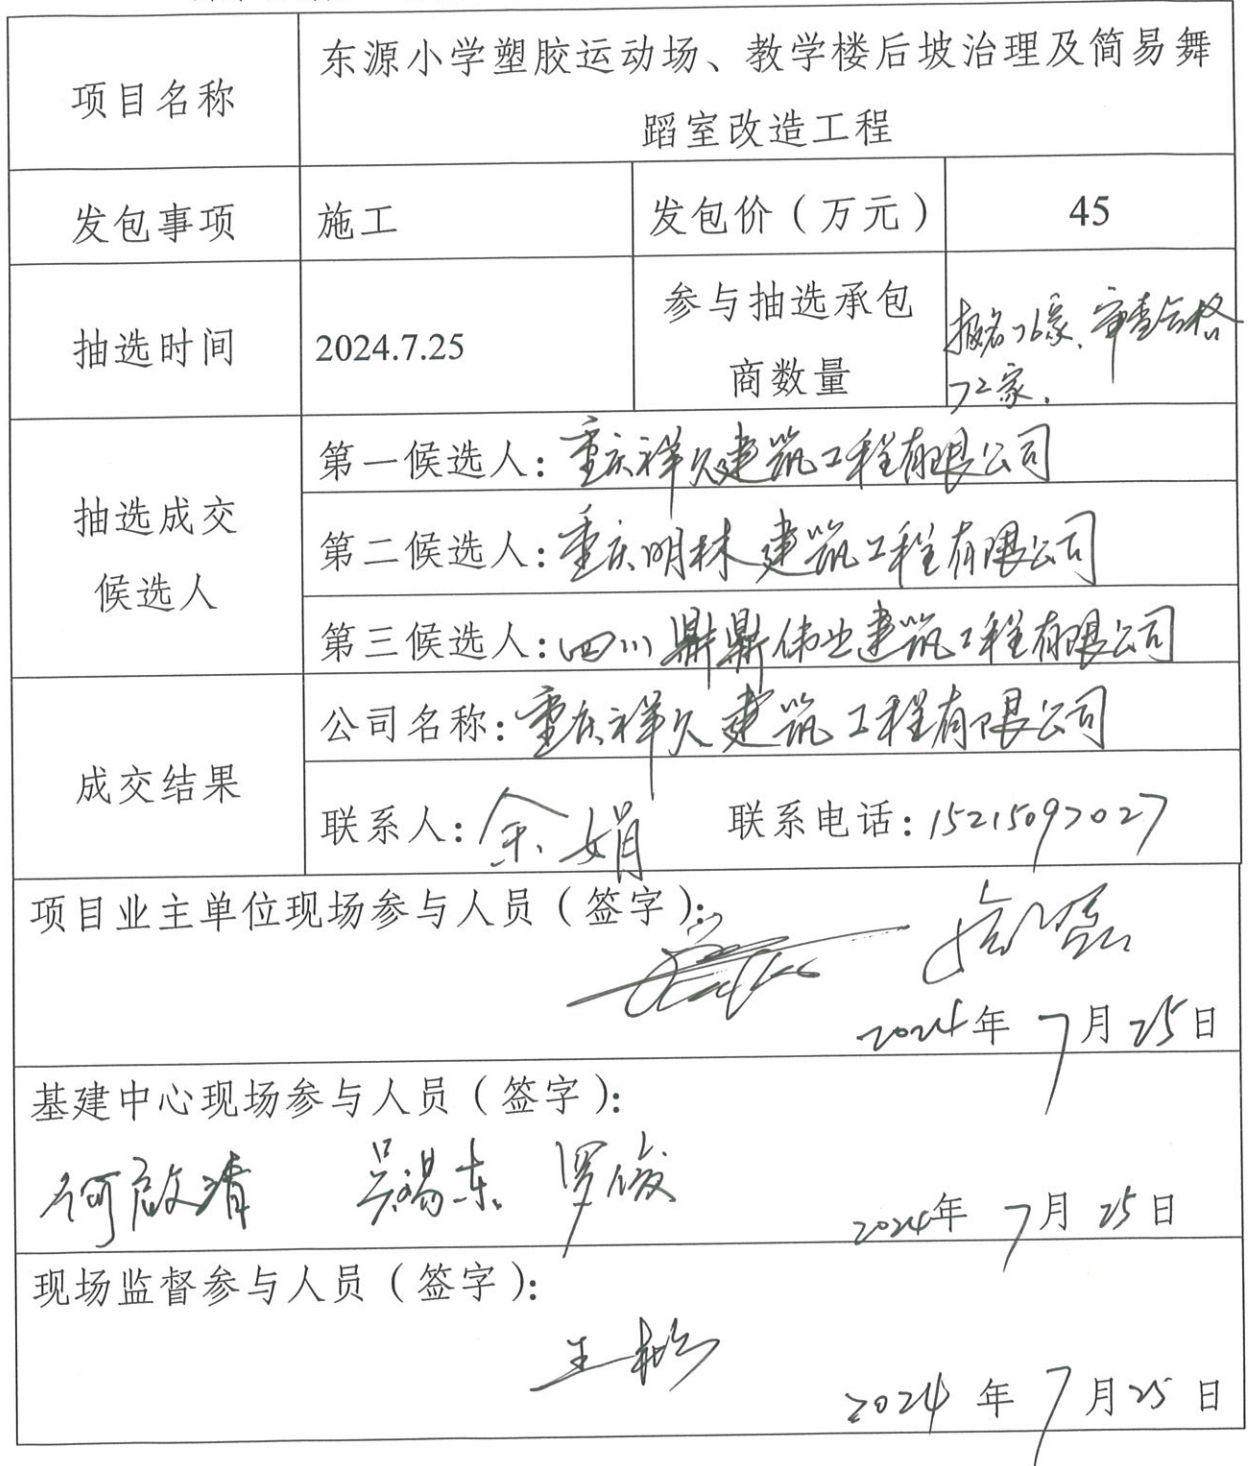 项目名称
东源小学塑胶运动场、教学楼后坡治理及简易舞
蹈室改造工程
发包事项
施工
发包价（万元）
45
抽选时间
2024.7.25
参与抽选承包
商数量
报名76家、审查合格
72家.
抽选成交
候选人
第一候选人:重庆祥久建筑工程有限公司
第二候选人:重庆明林建筑工程有限公司
第三候选人:四川鼎鼎伟业建筑工程有限公司
成交结果
公司名称:重庆祥久建筑工程有限公司
联系人:余娟 联系电话:15215097027
项目业主单位现场参与人员（签字）:
2024年7月25日
基建中心现场参与人员（签字）:
何啟清 吴锡东 罗俊
2024年7月25日
现场监督参与人员（签字）:
王松
2024年7月25日